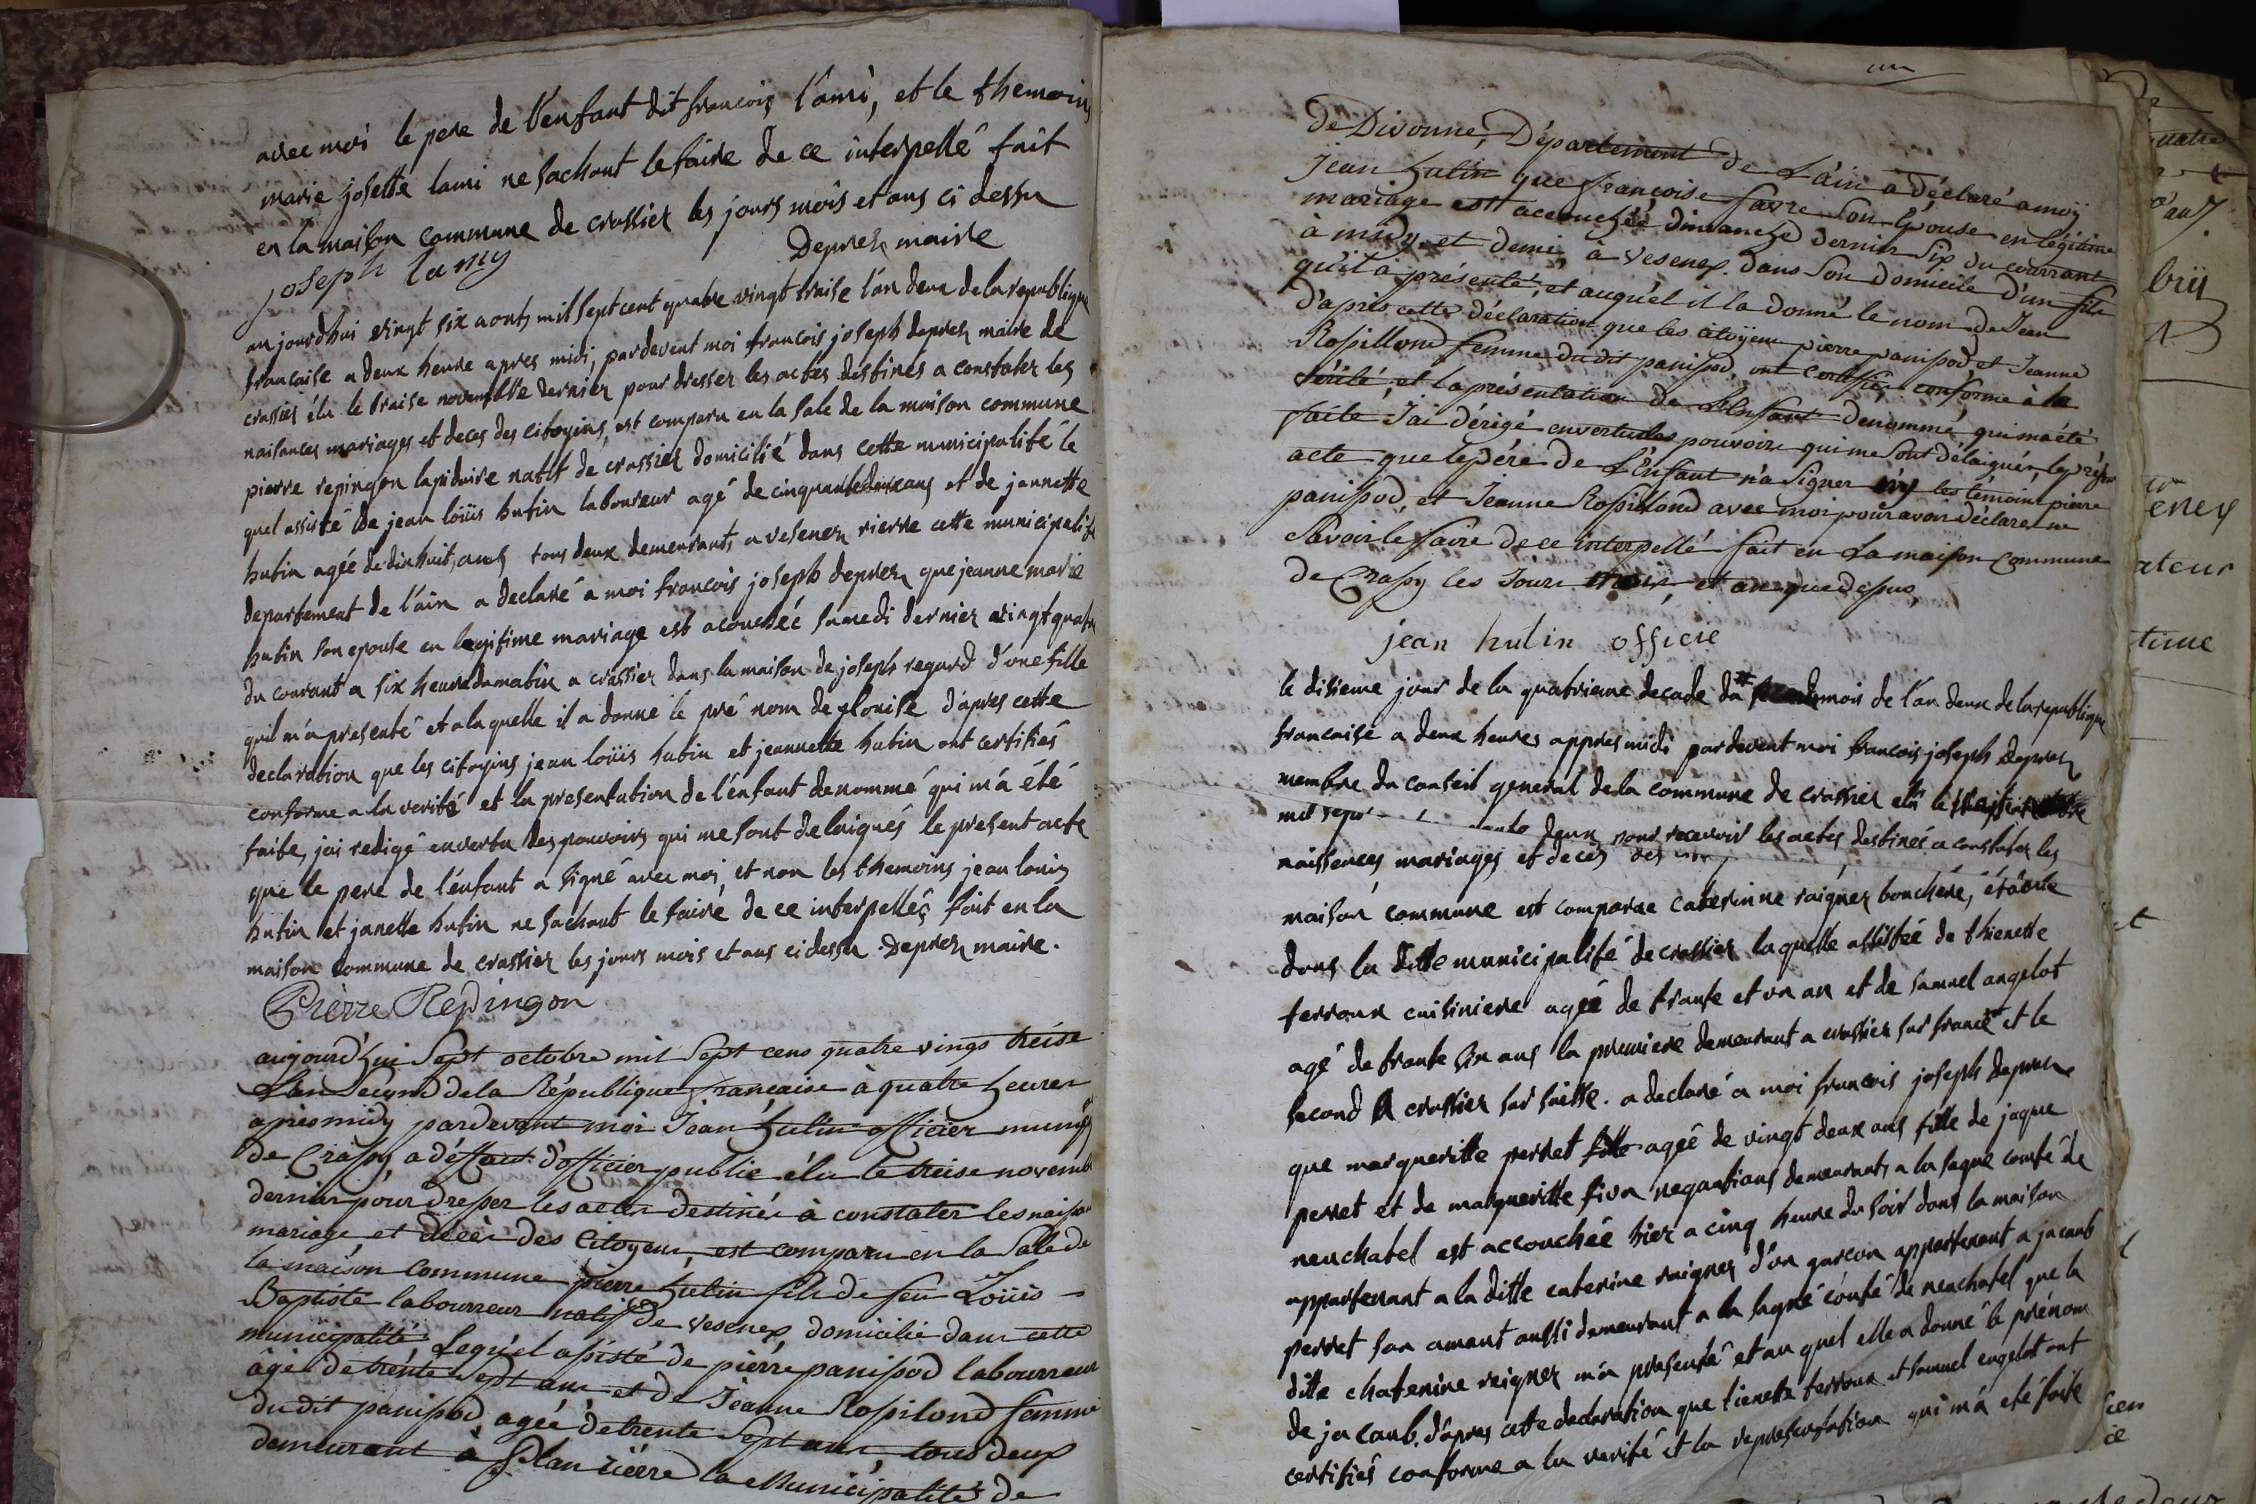 avec moi le pere de l'enfant dit francois l'ami, et le themoins
marie josette lami ne sachant le faire de ce interpellé fait
en la maison commune de crassier les jours mois et ans ci dessu
Deprez maire
joseph lamy
aujourdhui vingt six aout mil sept cent quatre vingt traise l'an deux de la republique
francaise a deux heure apres midi, pardevent moi francois joseph deprez maire de
crassier élu le traise novembre dernier pour dresser les actes destinés a constater les
naisances mariages et deces des citoyins, est comparu en la sale de la maison commune
pierre repingon lapidaire natif de crassier domicilié dans cette municipalité le
quel assisté de jean loüis hutin laboureur agé de cinquante deux ans et de jannette
hutin agée de dix huit ans tous deux demeurants a vesenex rierre cette municipalité
departement de l'ain a declaré a moi francois joseph deprez que jeanne marie
hutin son epouse en legitime mariage est acouchéé samedi dernier vingt quatre
du courant a six heure du matin a crassier dans la maison de joseph regard d'une fille
quil m'a presenté et a la quelle il a donné le pré nom de glouise d'apres cette
declaration que les citoyins jean loüis hutin et jeannette hutin ont certifiés
conforme a la verité et la presentation de l'énfant denommé qui m'á été
faite, jai redigé envertu des pouvoirs qui me sont delaigués le present acte
que le pere de l'énfant a signé avec moi, et non les themoins jean louis
hutin et janette hutin ne sachant le faire de ce interpellés fait en la
maison commune de crassier les jours mois et ans ci dessu. Deprez maire.
Pierre Repingon
aujourd'hui Sept octobre mil Sept cens quatre vings treise
L'an Second de la République française à quatre heures
apres midy pardevant moi Jean hutin officier
de Crassy, a déffaut d'officier public élu le treise novemb
dernier pour dresser les actes destinés à constater les
mariage, et décés des Citoyens, est comparu en la Salle de
la maison Commune pierre hutin fils de feu Loüis
Baptiste labourreur natif de vesenex, domicilié dans cette
municipalité, Lequel assisté de pierre panissod labourreur
âgé de trente Sept ans et de Jeanne Rossilond femme
du dit panissod, agée de trente Sept ans, tous deux
demeurant à Plan riére la Municipalité de
de Divonne, Département de L'ain a déclaré a moÿ
jean hutin que françoise favre Son Epouse en légitime
mariage est accouchée dimanche dernier Six du courrant
à midy et demi, à vesenex dans Son domicile d'un fils
qu'il a présenté, et auquel il la donné le nom de Jean
d'aprés cette déclaration que les citoÿens pierre panissod et Jeanne
Rossillond femme du dit panissod, ont certifié conforme à la
vérité, et la présentation de L'Enfant dénommé qui ma été
faite J'ai dérigé envertu des pouvoirs qui me Sont délaigués, le présen
acte que le pére de L'Enfant n'a Signer les témoins pierre
panissod, et Jeanne Rossillond avec moi pour avoir déclaré ne
Savoir le faire de ce interpellé fait en La maison Commune
de Crassy les Jours et an que dessus,
jean hutin officie
le disieme jour de la quatrieme decade du mois de l'an deux de la republique
francaise a deux heures appres midi pardevent moi francois joseph Deprez
membre du conseil general de la commune de crassier elu le
mil deux pour recevoir les actes destinés a constater les
naissences, mariages et decès des
maison commune est comparue caterinne raignez bouchére,
dans la ditte municipalité de crassier laquelle assistée de thienette
terroux cuisiniere agéé de trante et un an et de samuel angelot
agé de trante ans la premiere demeurant a crassier sur france et le
second a crassier sur suisse. a declaré a moi francois joseph deprez
que margueritte perret agéé de vingt deux ans fille de jaque
perret et de margueritte negantians demeurants a la sagne comté de
neuchatel est accouchéé hier a cinq heure du soir dans la maison
appartenant a la ditte caterine raignez d'un garcon appartenant a jacaub
perret son amant aussi demeurant a la sagne comté de neuchatel que la
ditte chaterine reignez m'a presenté et au quel elle a donné le prénom
de jacaub. d'apres cette declaration que tienette terroux et samuel engelot ont
certifiés conforme a la verité et la representation qui m'a eté faite